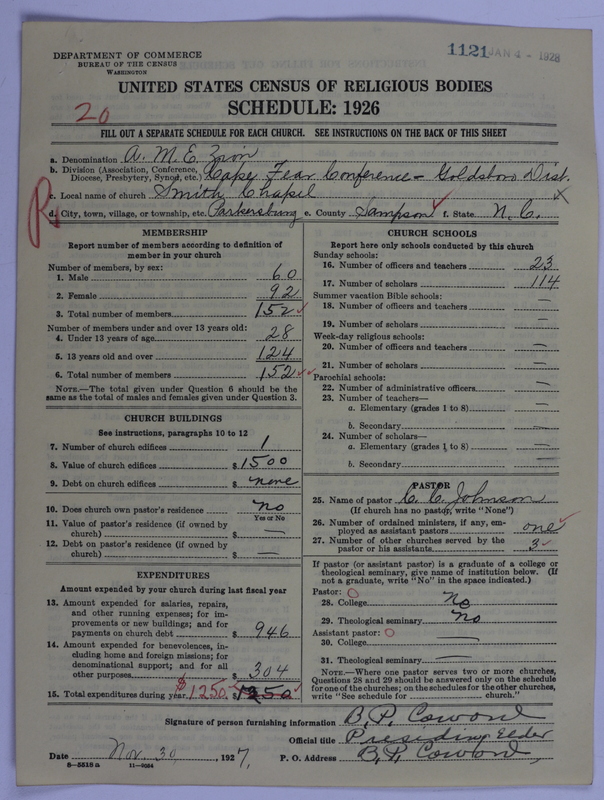 1121 JAN 4 - 1928
DEPARTMENT OF COMMERCE
BUREAU OF THE CENSUS
WASHINGTON
UNITED STATES CENSUS OF RELIGIOUS BODIES
SCHEDULE: 1926
20
FILL OUT A SEPARATE SCHEDULE FOR EACH CHURCH. SEE INSTRUCTIONS ON THE BACK OF THIS SHEET
a. Denomination A. M. E. Zion
b. Division (Association, Conference, Diocese, Presbytery, Synod, etc.) Cape Fear Conference - Goldsboro Dist.
c. Local name of church Smith Chapel X
R
d. City, town, village, or township, etc. Parkersburg e. County Sampson f. State N. C.
MEMBERSHIP
Report number of members according to definition of
member in your church
Number of members, by sex:
1. Male 60
2. Female 92
3. Total number of members 152
Number of members under and over 13 years old:
4. Under 13 years of age 28
5. 13 years old and over 124
6. Total number of members 152
NOTE.—The total given under Question 6 should be the
same as the total of males and females given under Question 3.
CHURCH BUILDINGS
See instructions, paragraphs 10 to 12
7. Number of church edifices 1
8. Value of church edifices $1500
9. Debt on church edifices $ none
10. Does church own pastor's residence no
Yes or No
11. Value of pastor's residence (if owned by
church) $ —
12. Debt on pastor's residence (if owned by
church) $ —
EXPENDITURES
Amount expended by your church during last fiscal year
13. Amount expended for salaries, repairs,
and other running expenses; for im-
provements or new buildings; and for
payments on church debt $ 946
14. Amount expended for benevolences, in-
cluding home and foreign missions; for
denominational support; and for all
other purposes $ 304
15. Total expenditures during year $1250 $ 1250
CHURCH SCHOOLS
Report here only schools conducted by this church
Sunday schools:
16. Number of officers and teachers 23
17. Number of scholars 114
Summer vacation Bible schools:
18. Number of officers and teachers —
19. Number of scholars —
Week-day religious schools:
20. Number of officers and teachers —
21. Number of scholars —
Parochial schools:
22. Number of administrative officers —
23. Number of teachers—
a. Elementary (grades 1 to 8) —
b. Secondary —
24. Number of scholars—
a. Elementary (grades 1 to 8) —
b. Secondary —
PASTOR
25. Name of pastor C. C. Johnson
(If church has no pastor, write "None")
26. Number of ordained ministers, if any, em-
ployed as assistant pastors one
27. Number of other churches served by the
pastor or his assistants 3
If pastor (or assistant pastor) is a graduate of a college or
theological seminary, give name of institution below. (If
not a graduate, write "No" in the space indicated.)
Pastor:
28. College no
29. Theological seminary no
Assistant pastor:
30. College —
31. Theological seminary —
NOTE.—Where one pastor serves two or more churches,
Questions 28 and 29 should be answered only on the schedule
for one of the churches; on the schedules for the other churches,
write "See schedule for church."
Signature of person furnishing information B. P. Coward
Official title Presiding Elder
Date Nov. 30, 1927, P. O. Address B. P. Coward,
8—5518a 11—9054